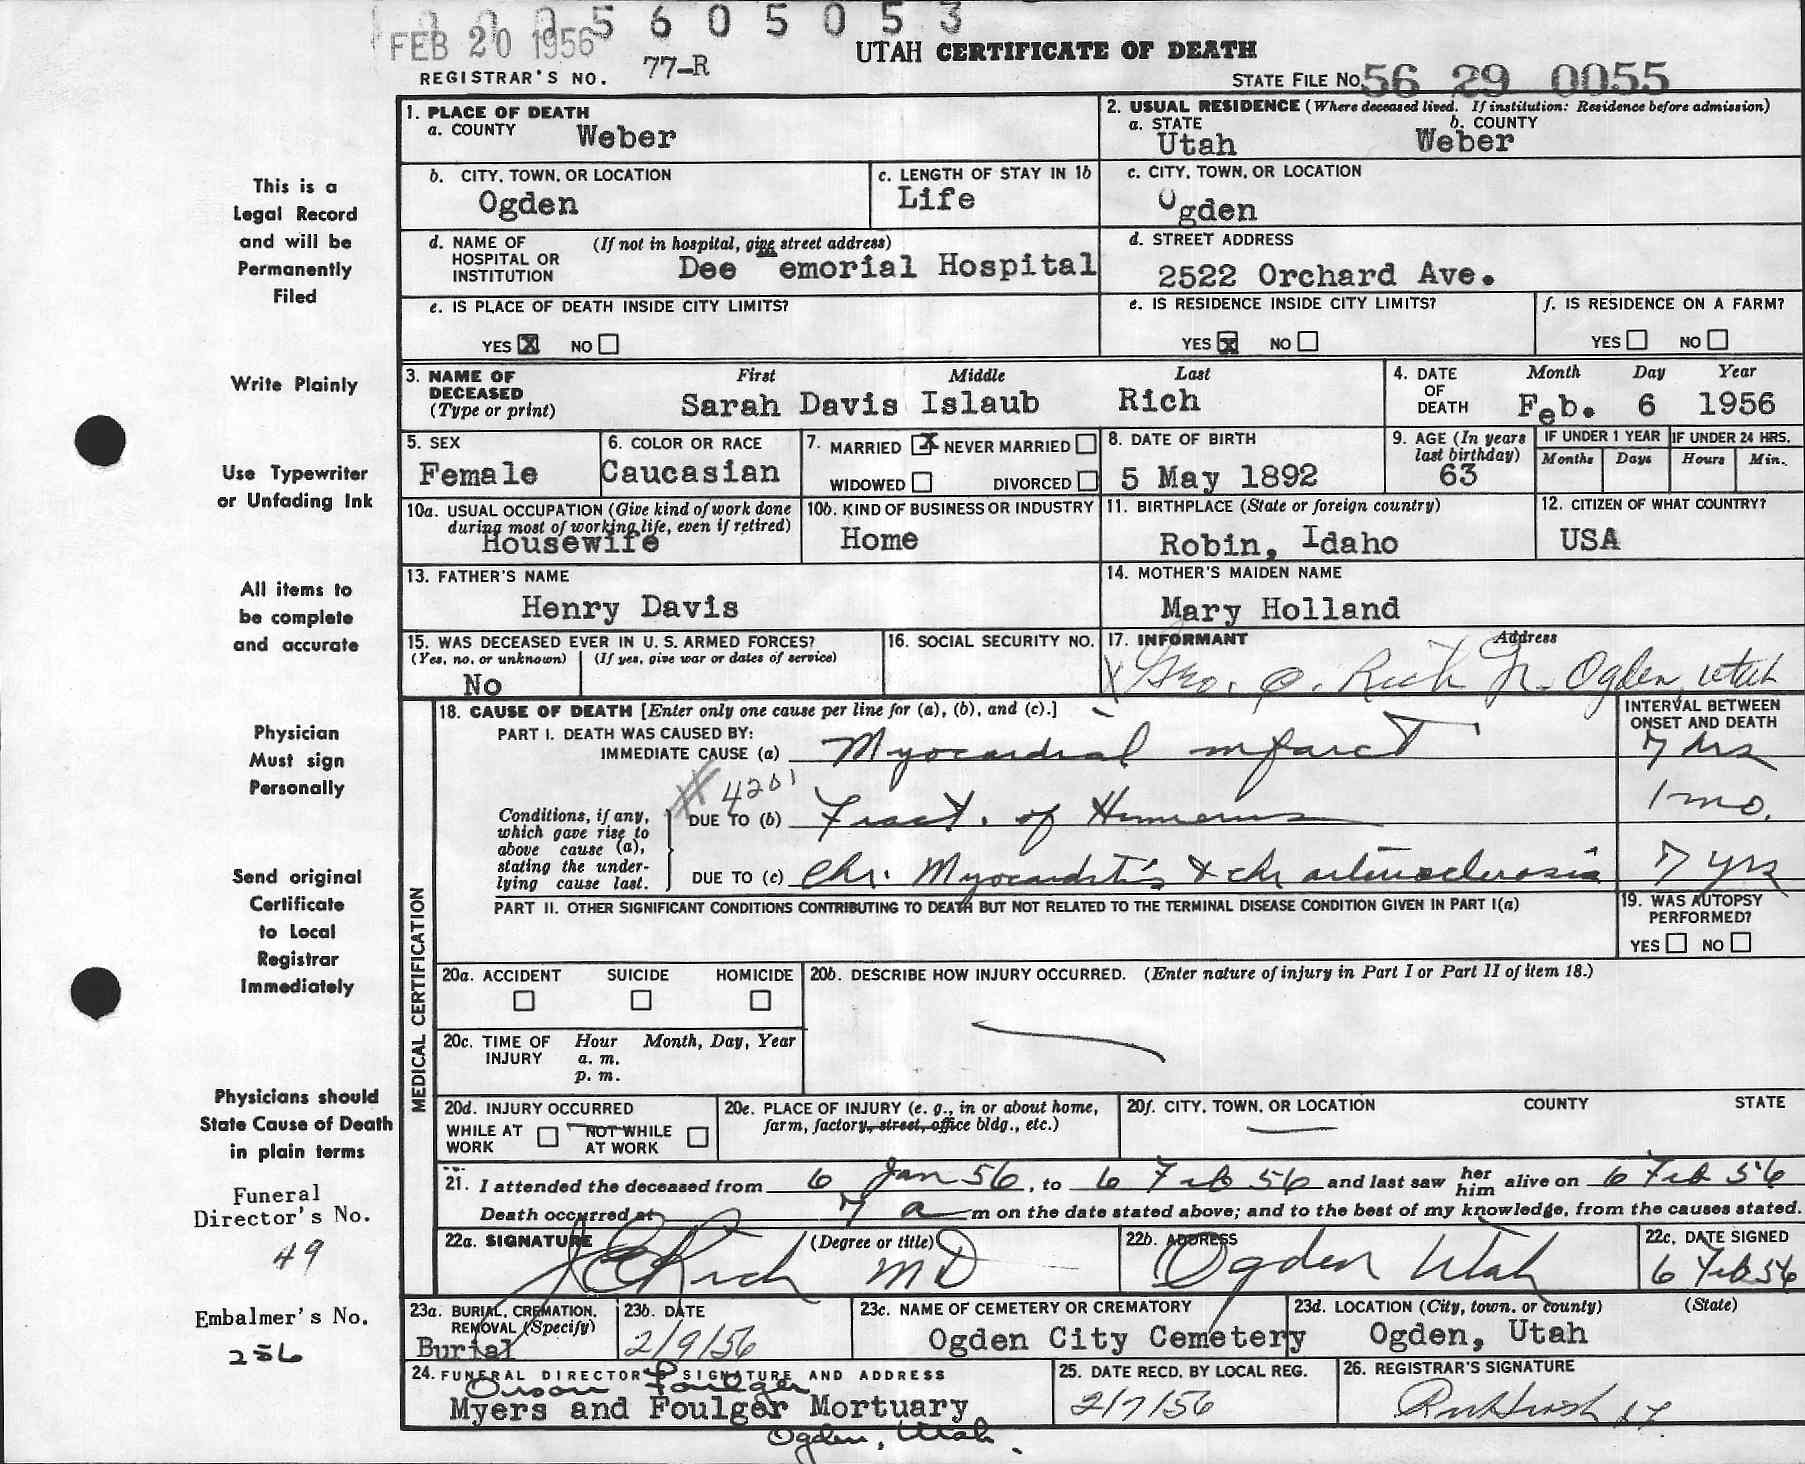 0056 05053
FEB 20 1956
UTAH CERTIFICATE OF DEATH
REGISTRAR'S NO. 77-R
STATE FILE NO. 56 29 0055
This is a
Legal Record
and will be
Permanently
Filed
Write Plainly
Use Typewriter
or Unfading Ink
All items to
be complete
and accurate
Physician
Must sign
Personally
Send original
Certificate
to Local
Registrar
Immediately
Physicians should
State Cause of Death
in plain terms
Funeral
Director's No.
49
Embalmer's No.
256
1. PLACE OF DEATH
a. COUNTY Weber
2. USUAL RESIDENCE (Where deceased lived. If institution: Residence before admission)
a. STATE Utah b. COUNTY Weber
b. CITY, TOWN, OR LOCATION Ogden
c. LENGTH OF STAY IN 1b Life
c. CITY, TOWN, OR LOCATION Ogden
d. NAME OF HOSPITAL OR INSTITUTION (If not in hospital, give street address) Dee Memorial Hospital
d. STREET ADDRESS 2522 Orchard Ave.
e. IS PLACE OF DEATH INSIDE CITY LIMITS?
YES X NO
e. IS RESIDENCE INSIDE CITY LIMITS?
YES X NO
f. IS RESIDENCE ON A FARM?
YES NO
3. NAME OF DECEASED (Type or print) First Middle Last
Sarah Davis Islaub Rich
4. DATE OF DEATH Month Day Year
Feb. 6 1956
5. SEX Female
6. COLOR OR RACE Caucasian
7. MARRIED X NEVER MARRIED
WIDOWED DIVORCED
8. DATE OF BIRTH 5 May 1892
9. AGE (In years last birthday) 63
IF UNDER 1 YEAR Months Days
IF UNDER 24 HRS. Hours Min.
10a. USUAL OCCUPATION (Give kind of work done during most of working life, even if retired) Housewife
10b. KIND OF BUSINESS OR INDUSTRY Home
11. BIRTHPLACE (State or foreign country) Robin, Idaho
12. CITIZEN OF WHAT COUNTRY? USA
13. FATHER'S NAME Henry Davis
14. MOTHER'S MAIDEN NAME Mary Holland
15. WAS DECEASED EVER IN U. S. ARMED FORCES?
(Yes, no, or unknown) (If yes, give war or dates of service)
No
16. SOCIAL SECURITY NO.
17. INFORMANT Address
X Geo. Q. Rich Jr. Ogden, Utah
18. CAUSE OF DEATH [Enter only one cause per line for (a), (b), and (c).]
INTERVAL BETWEEN ONSET AND DEATH
PART I. DEATH WAS CAUSED BY:
IMMEDIATE CAUSE (a) Myocardial infarct 7 hrs
4201
Conditions, if any, which gave rise to above cause (a), stating the underlying cause last.
DUE TO (b) Fract. of Humerus 1 mo.
DUE TO (c) Chr. Myocarditis & chr arteriosclerosis 7 yrs
PART II. OTHER SIGNIFICANT CONDITIONS CONTRIBUTING TO DEATH BUT NOT RELATED TO THE TERMINAL DISEASE CONDITION GIVEN IN PART I(a)
19. WAS AUTOPSY PERFORMED?
YES NO
MEDICAL CERTIFICATION
20a. ACCIDENT SUICIDE HOMICIDE
20b. DESCRIBE HOW INJURY OCCURRED. (Enter nature of injury in Part I or Part II of item 18.)
20c. TIME OF INJURY Hour Month, Day, Year
a. m.
p. m.
20d. INJURY OCCURRED
WHILE AT WORK NOT WHILE AT WORK
20e. PLACE OF INJURY (e. g., in or about home, farm, factory, street, office bldg., etc.)
20f. CITY, TOWN, OR LOCATION COUNTY STATE
21. I attended the deceased from 6 Jan 56, to 6 Feb 56 and last saw her him alive on 6 Feb 56
Death occurred at 7 a m on the date stated above; and to the best of my knowledge, from the causes stated.
22a. SIGNATURE (Degree or title) Rich MD
22b. ADDRESS Ogden Utah
22c. DATE SIGNED 6 Feb 56
23a. BURIAL, CREMATION, REMOVAL (Specify) Burial
23b. DATE 2/9/56
23c. NAME OF CEMETERY OR CREMATORY Ogden City Cemetery
23d. LOCATION (City, town, or county) (State) Ogden, Utah
24. FUNERAL DIRECTOR'S SIGNATURE AND ADDRESS
Orson Foulger
Myers and Foulger Mortuary
Ogden, Utah.
25. DATE RECD. BY LOCAL REG. 2/7/56
26. REGISTRAR'S SIGNATURE